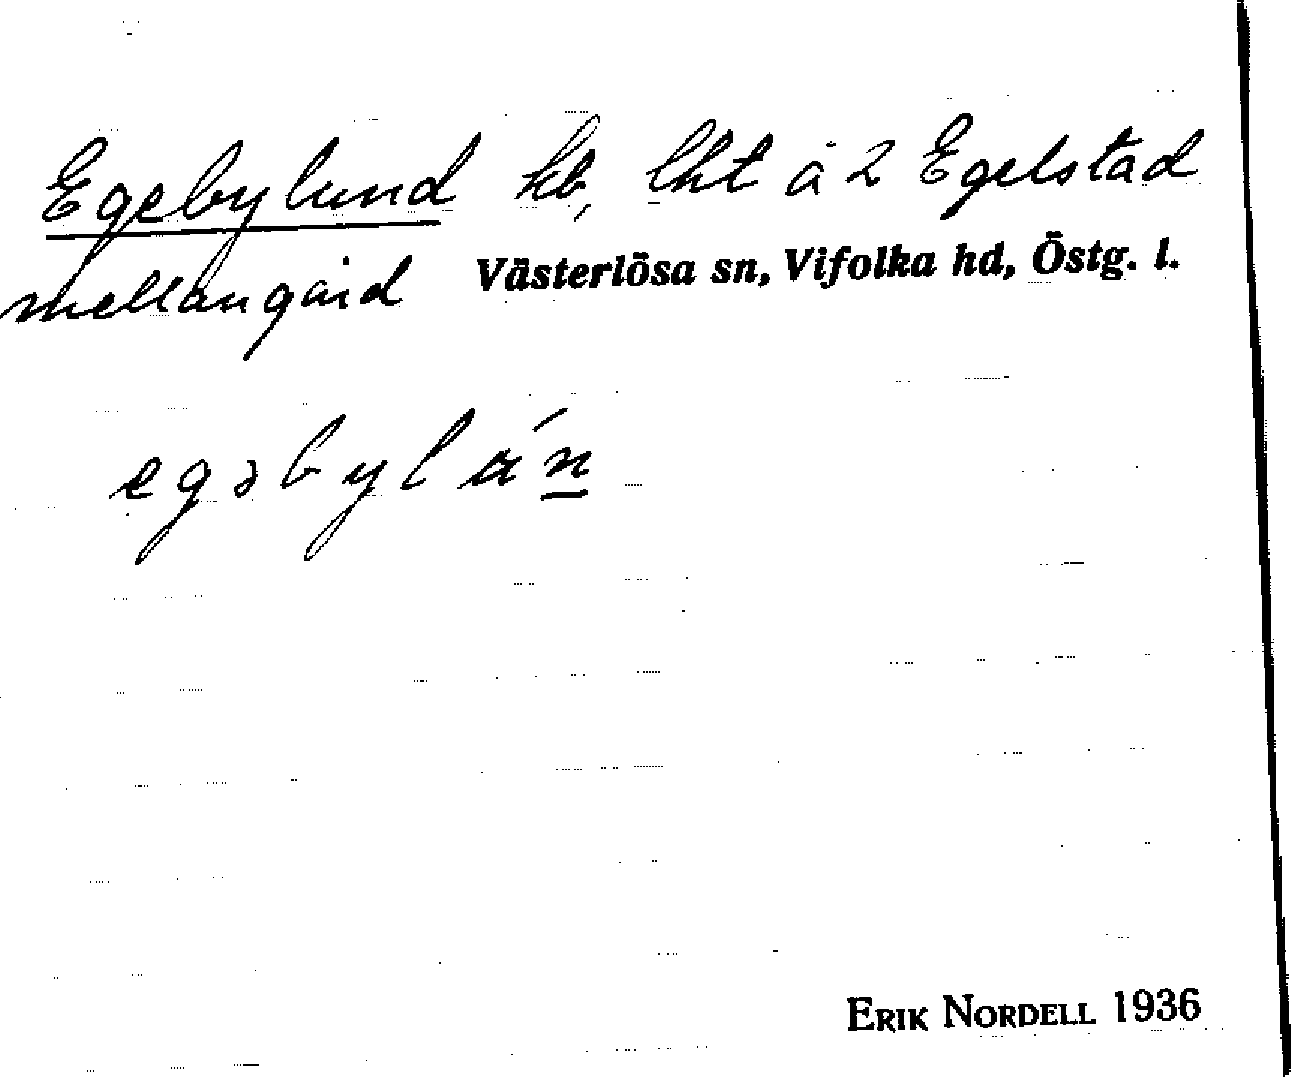 Egebylund hb, lht å 2 Egelstad
mellangård Västerlösa sn, Vifolka hd, Östg. l.
egəbylán
ERIK NORDELL 1936